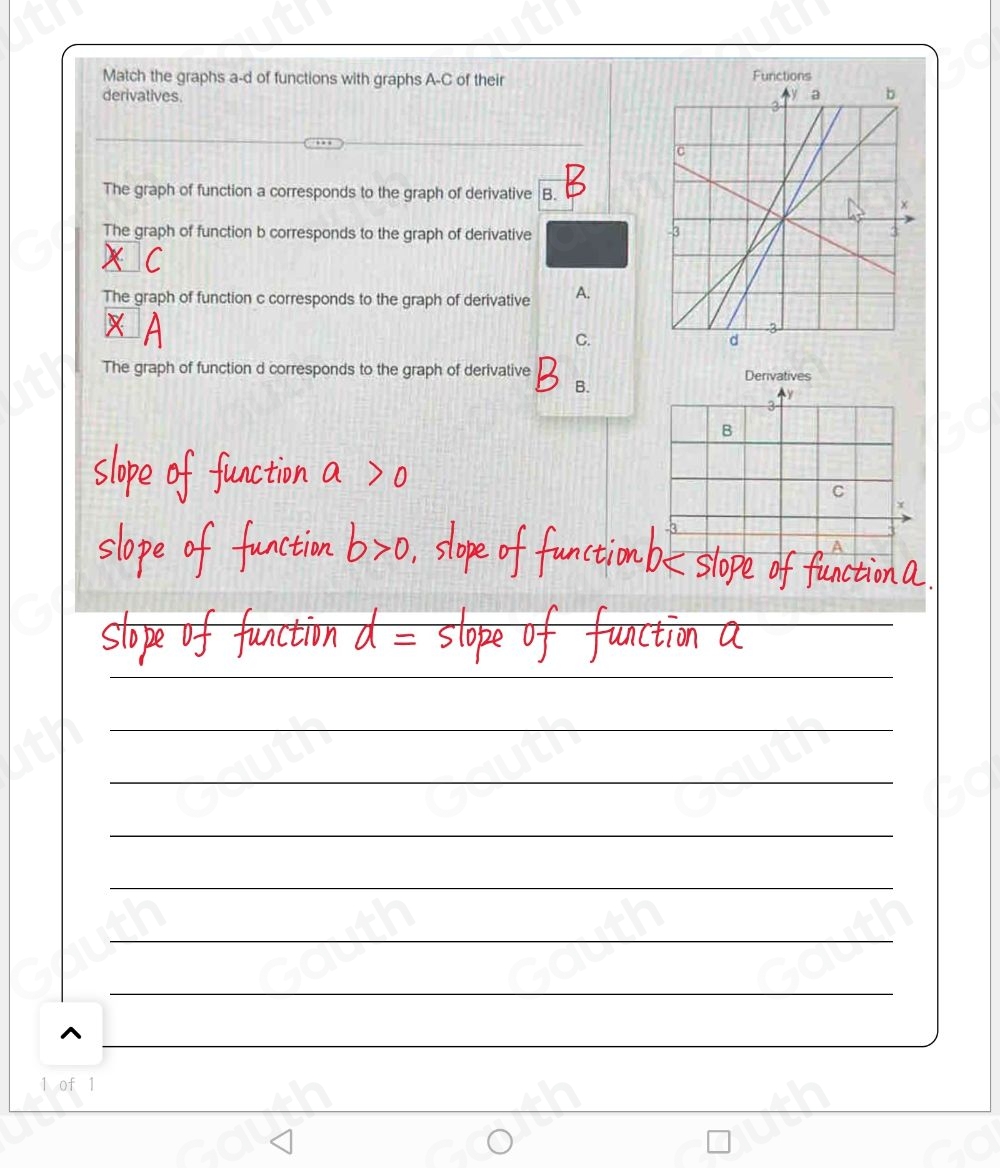 Match the graphs a-d of functions with graphs A-C of their
derivatives.
The graph of function a corresponds to the graph of derivative B. B
The graph of function b corresponds to the graph of derivative
X C
The graph of function c corresponds to the graph of derivative
X A
The graph of function d corresponds to the graph of derivative B
A.
C.
B.
Functions
y a b
3
c
x
-3 3
-3
d
Derivatives
y
3
B
C
x
-3 3
A
slope of function a >0
slope of function b>0, slope of function b< slope of function a.
slope of function d = slope of function a
1 of 1
Gauth